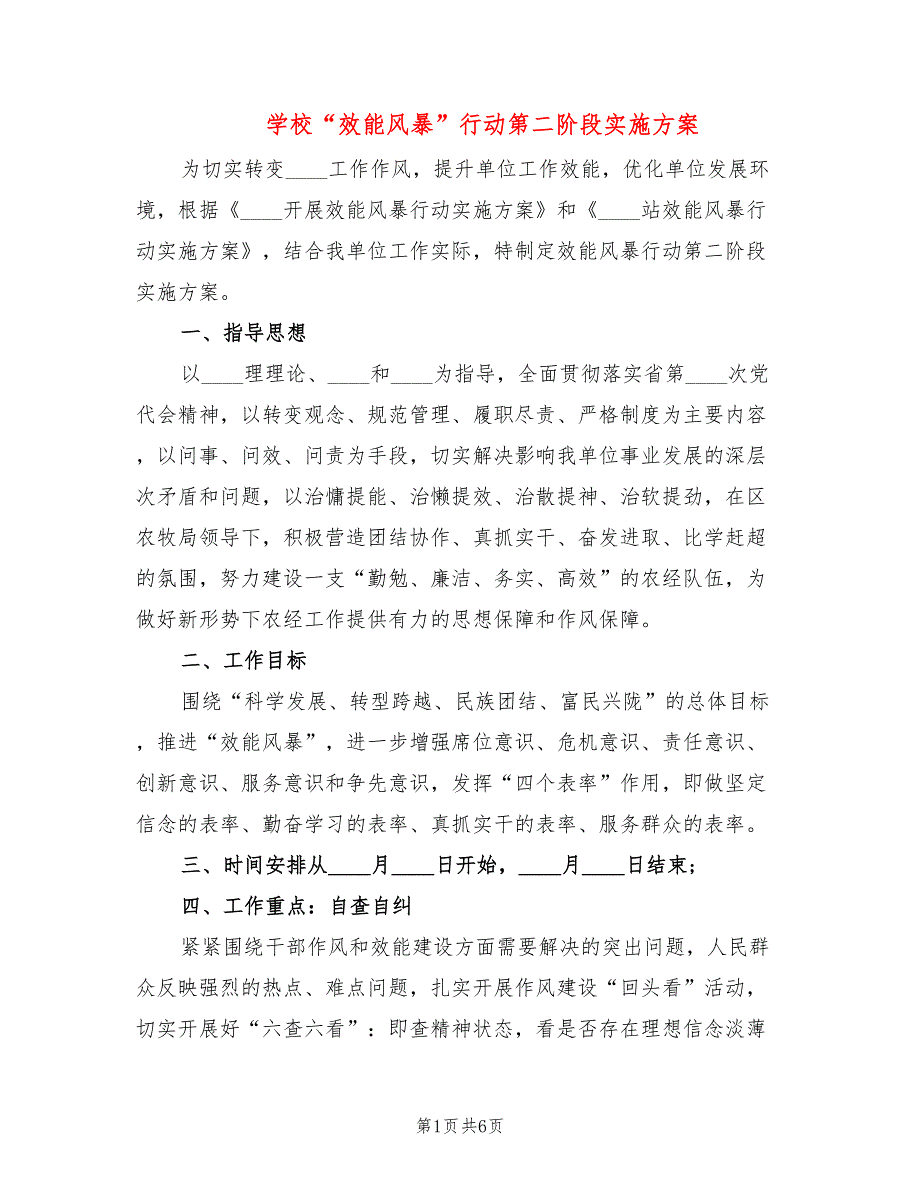 学校“效能风暴”行动第二阶段实施方案
为切实转变____工作作风，提升单位工作效能，优化单位发展环
境，根据《____开展效能风暴行动实施方案》和《____站效能风暴行
动实施方案》，结合我单位工作实际，特制定效能风暴行动第二阶段
实施方案。
一、指导思想
以____理理论、____和____为指导，全面贯彻落实省第____次党
代会精神，以转变观念、规范管理、履职尽责、严格制度为主要内容
，以问事、问效、问责为手段，切实解决影响我单位事业发展的深层
次矛盾和问题，以治慵提能、治懒提效、治散提神、治软提劲，在区
农牧局领导下，积极营造团结协作、真抓实干、奋发进取、比学赶超
的氛围，努力建设一支“勤勉、廉洁、务实、高效”的农经队伍，为
做好新形势下农经工作提供有力的思想保障和作风保障。
二、工作目标
围绕“科学发展、转型跨越、民族团结、富民兴陇”的总体目标
，推进“效能风暴”，进一步增强席位意识、危机意识、责任意识、
创新意识、服务意识和争先意识，发挥“四个表率”作用，即做坚定
信念的表率、勤奋学习的表率、真抓实干的表率、服务群众的表率。
三、时间安排从____月____日开始，____月____日结束；
四、工作重点：自查自纠
紧紧围绕干部作风和效能建设方面需要解决的突出问题，人民群
众反映强烈的热点、难点问题，扎实开展作风建设“回头看”活动，
切实开展好“六查六看”：即查精神状态，看是否存在理想信念淡薄
第1页共6页